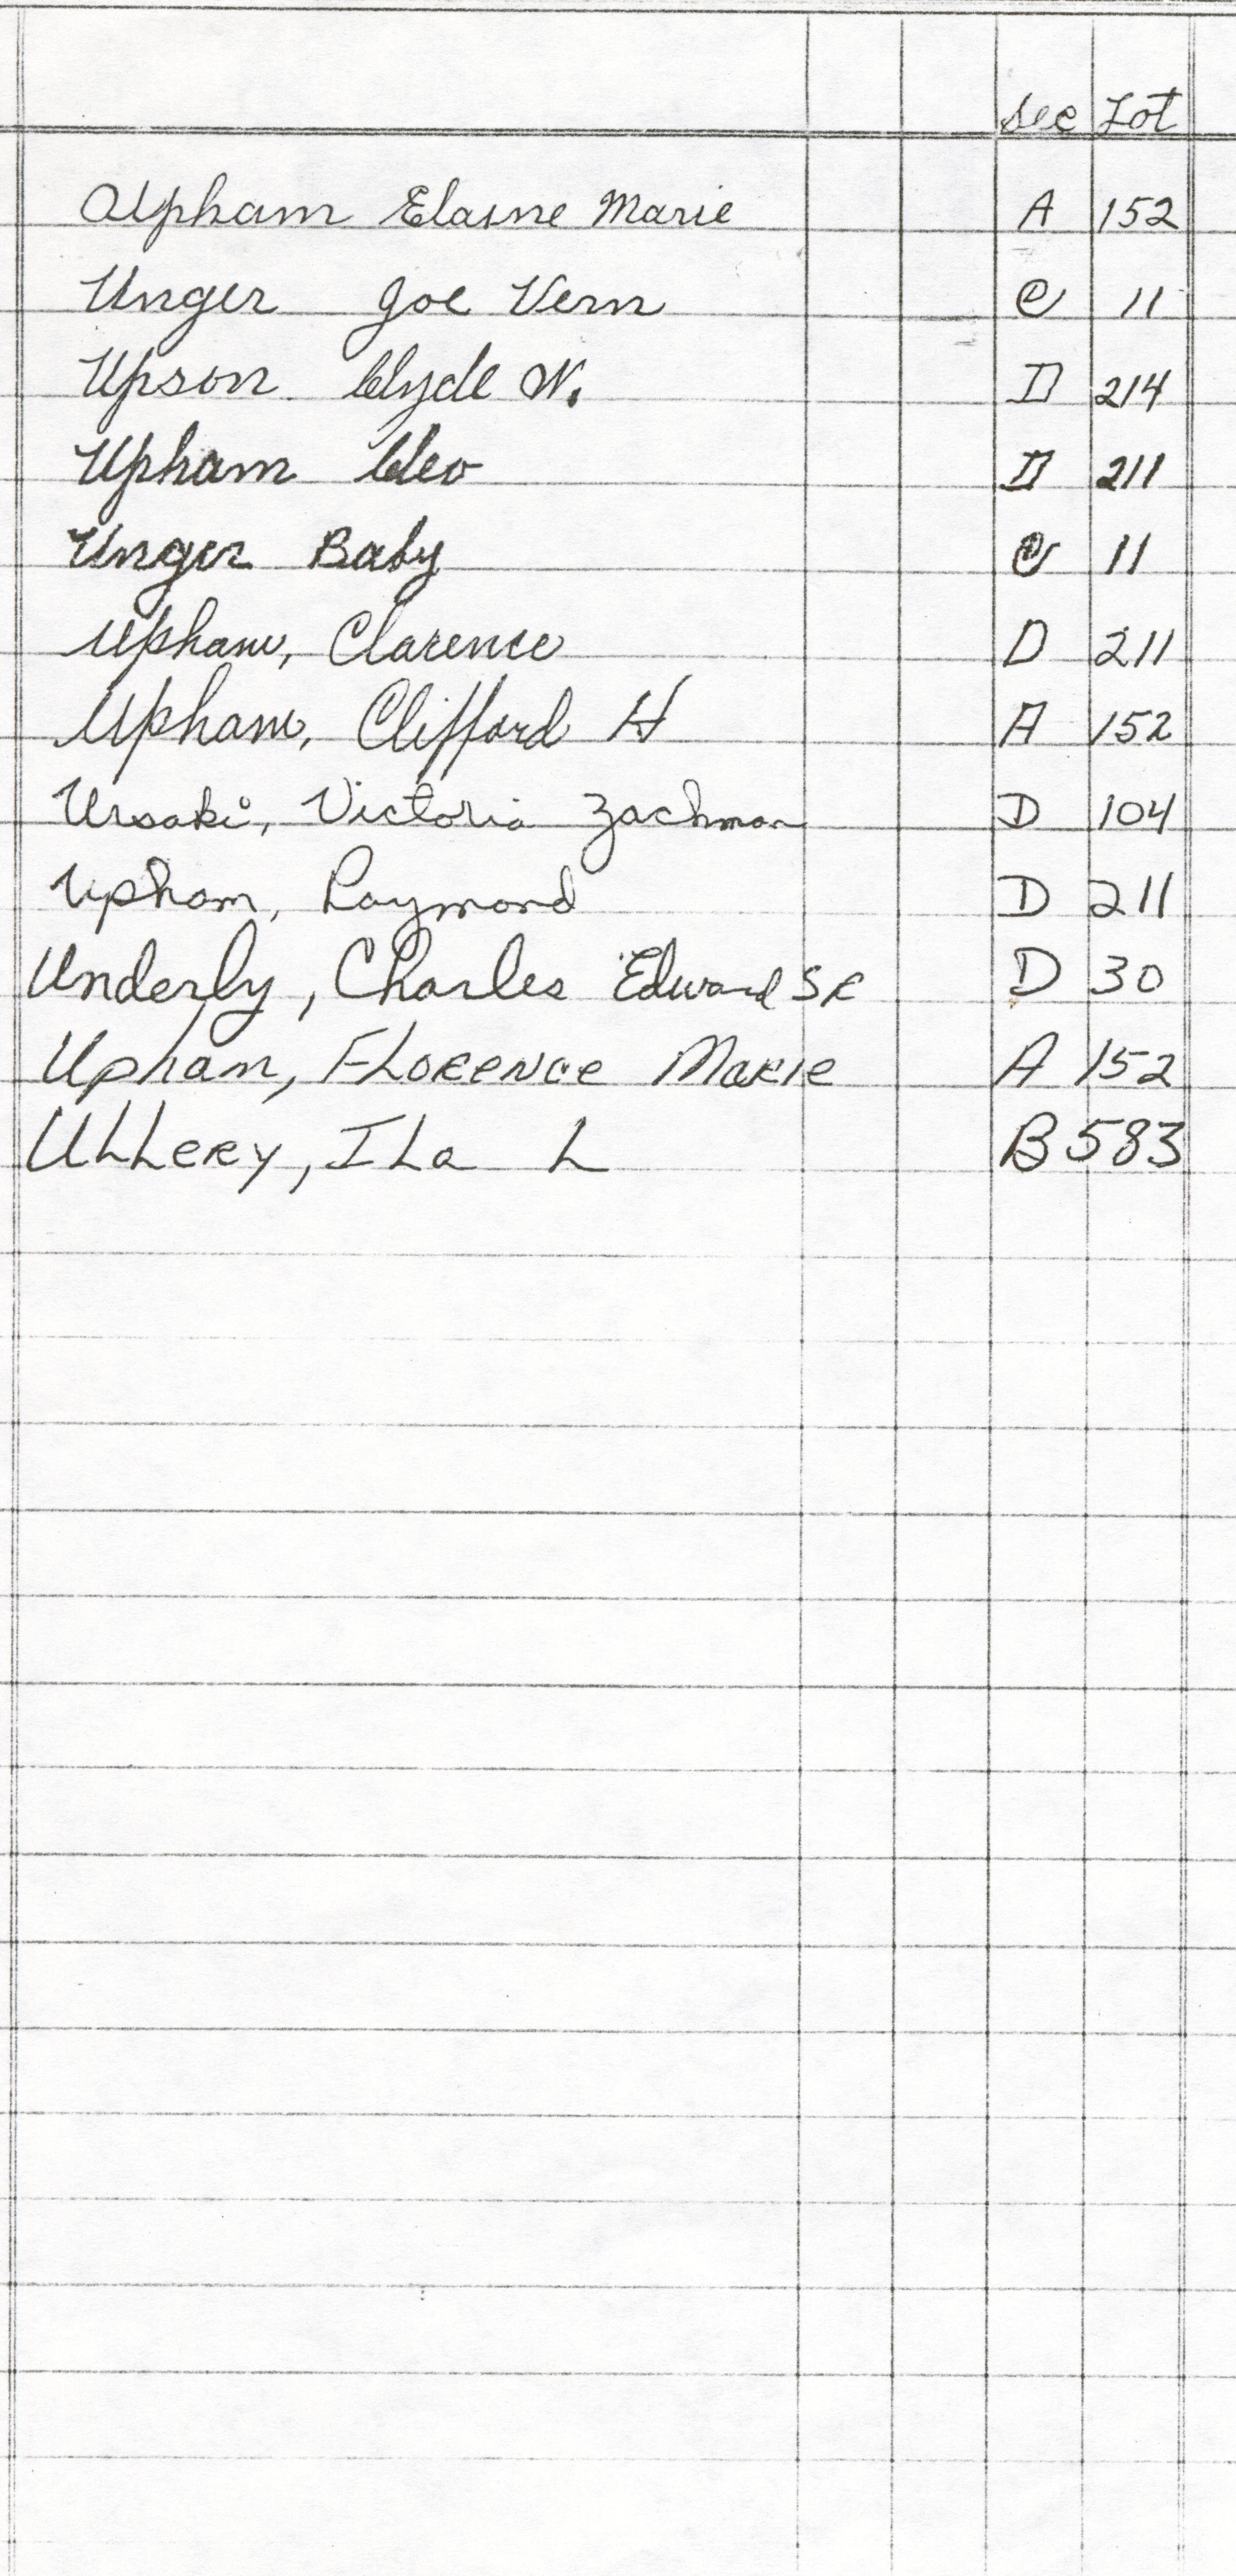 Sec Lot
Upham Elaine Marie A 152
Unger Joe Vern C 11
Upson Clyde W. D 214
Upham Cleo D 211
Unger Baby C 11
Upham, Clarence D 211
Upham, Clifford H A 152
Ursaki, Victoria Zachman D 104
Upham, Raymond D 211
Underly, Charles Edward SR D 30
Upham, FLORENCE MARIE A 152
ULLERY, ILa L B 583